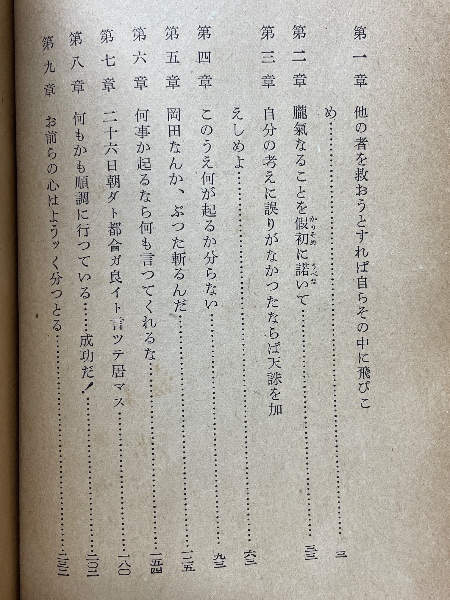 第一章 他の者を救おうとすれば自らその中に飛びこ
め……………………三
第二章 朧氣なることを假初に諾いて……………………三三
第三章 自分の考えに誤りがなかつたならば天誅を加
えしめよ……………………六三
第四章 このうえ何が起るか分らない……………………九三
第五章 岡田なんか、ぶつた斬るんだ……………………一二五
第六章 何事か起るなら何も言つてくれるな……………………一五四
第七章 二十六日朝ダト都合ガ良イト言ツテ居マス……………………一八〇
第八章 何もかも順調に行つている……成功だ！……………………二〇二
第九章 お前らの心はようッく分つとる……………………二三二